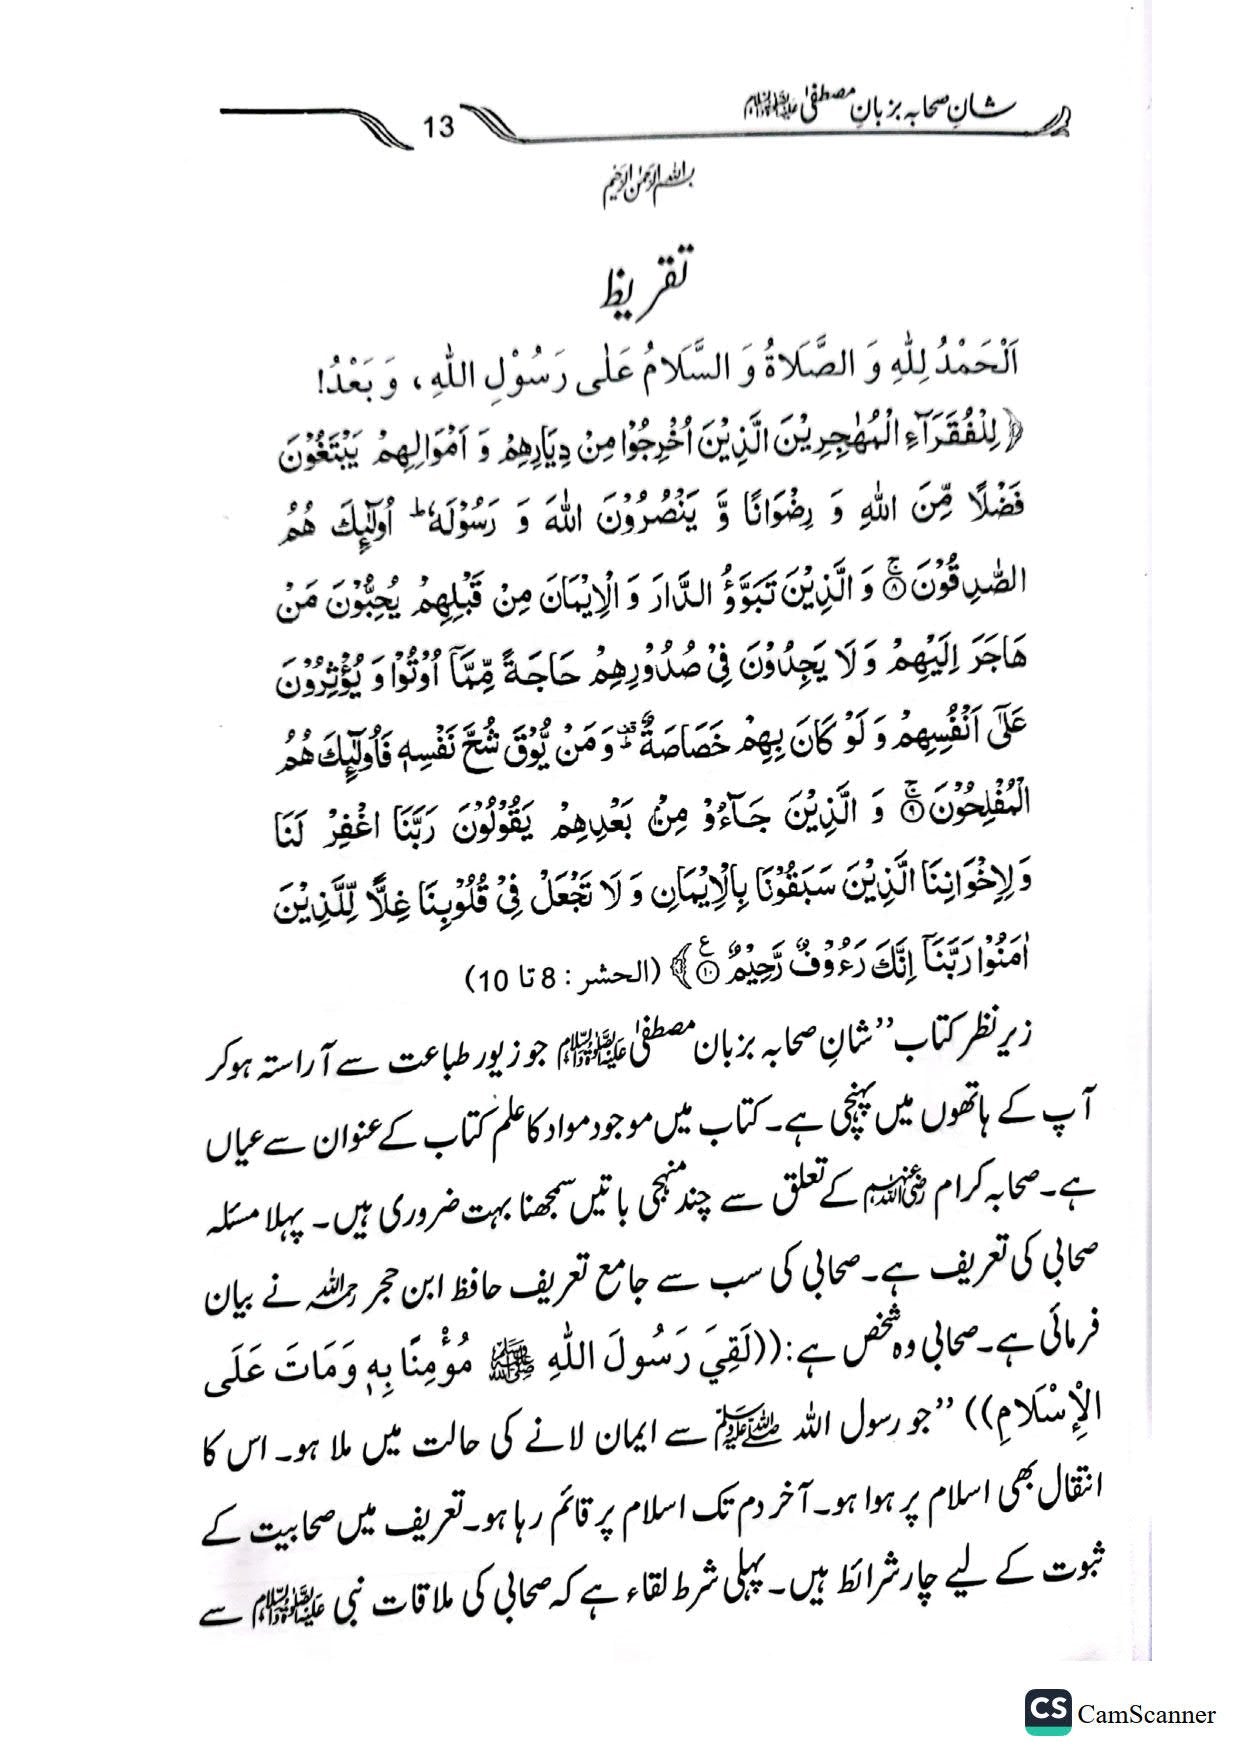 شانِ صحابہ بزبانِ مصطفیٰ ﷺ
13
بسم اللہ الرحمٰن الرحیم
تقریظ
اَلْحَمْدُ لِلّٰهِ وَ الصَّلَاةُ وَ السَّلَامُ عَلٰی رَسُوْلِ اللّٰهِ ، وَ بَعْدُ!
﴿لِلْفُقَرَآءِ الْمُهٰجِرِيْنَ الَّذِيْنَ اُخْرِجُوْا مِنْ دِيَارِهِمْ وَ اَمْوَالِهِمْ يَبْتَغُوْنَ
فَضْلًا مِّنَ اللّٰهِ وَ رِضْوَانًا وَّ يَنْصُرُوْنَ اللّٰهَ وَ رَسُوْلَهٗ ؕ اُولٰٓىِٕكَ هُمُ
الصّٰدِقُوْنَۚ۸ وَ الَّذِيْنَ تَبَوَّؤُ الدَّارَ وَ الْاِيْمَانَ مِنْ قَبْلِهِمْ يُحِبُّوْنَ مَنْ
هَاجَرَ اِلَيْهِمْ وَ لَا يَجِدُوْنَ فِيْ صُدُوْرِهِمْ حَاجَةً مِّمَّاۤ اُوْتُوْا وَ يُؤْثِرُوْنَ
عَلٰۤى اَنْفُسِهِمْ وَ لَوْ كَانَ بِهِمْ خَصَاصَةٌ ؕ۫ وَ مَنْ يُّوْقَ شُحَّ نَفْسِهٖ فَاُولٰٓىِٕكَ هُمُ
الْمُفْلِحُوْنَۚ۹ وَ الَّذِيْنَ جَآءُوْ مِنْۢ بَعْدِهِمْ يَقُوْلُوْنَ رَبَّنَا اغْفِرْ لَنَا
وَ لِاِخْوَانِنَا الَّذِيْنَ سَبَقُوْنَا بِالْاِيْمَانِ وَ لَا تَجْعَلْ فِيْ قُلُوْبِنَا غِلًّا لِّلَّذِيْنَ
اٰمَنُوْا رَبَّنَاۤ اِنَّكَ رَءُوْفٌ رَّحِيْمٌ۠۱۰﴾ (الحشر : 8 تا 10)
زیر نظر کتاب ’’شانِ صحابہ بزبان مصطفیٰ ﷺ جو زیور طباعت سے آراستہ ہوکر
آپ کے ہاتھوں میں پہنچی ہے۔ کتاب میں موجود مواد کا علم کتاب کے عنوان سے عیاں
ہے۔ صحابہ کرام رضی اللہ عنہم کے تعلق سے چند منہجی باتیں سمجھنا بہت ضروری ہیں۔ پہلا مسئلہ
صحابی کی تعریف ہے۔ صحابی کی سب سے جامع تعریف حافظ ابن حجر رحمہ اللہ نے بیان
فرمائی ہے۔ صحابی وہ شخص ہے: ((لَقِيَ رَسُولَ اللّٰهِ ﷺ مُؤْمِنًا بِهٖ وَمَاتَ عَلَى
الْإِسْلَامِ)) ’’جو رسول اللہ ﷺ سے ایمان لانے کی حالت میں ملا ہو۔ اس کا
انتقال بھی اسلام پر ہوا ہو۔ آخر دم تک اسلام پر قائم رہا ہو۔ تعریف میں صحابیت کے
ثبوت کے لیے چار شرائط ہیں۔ پہلی شرط لقاء ہے کہ صحابی کی ملاقات نبی ﷺ سے
CS CamScanner